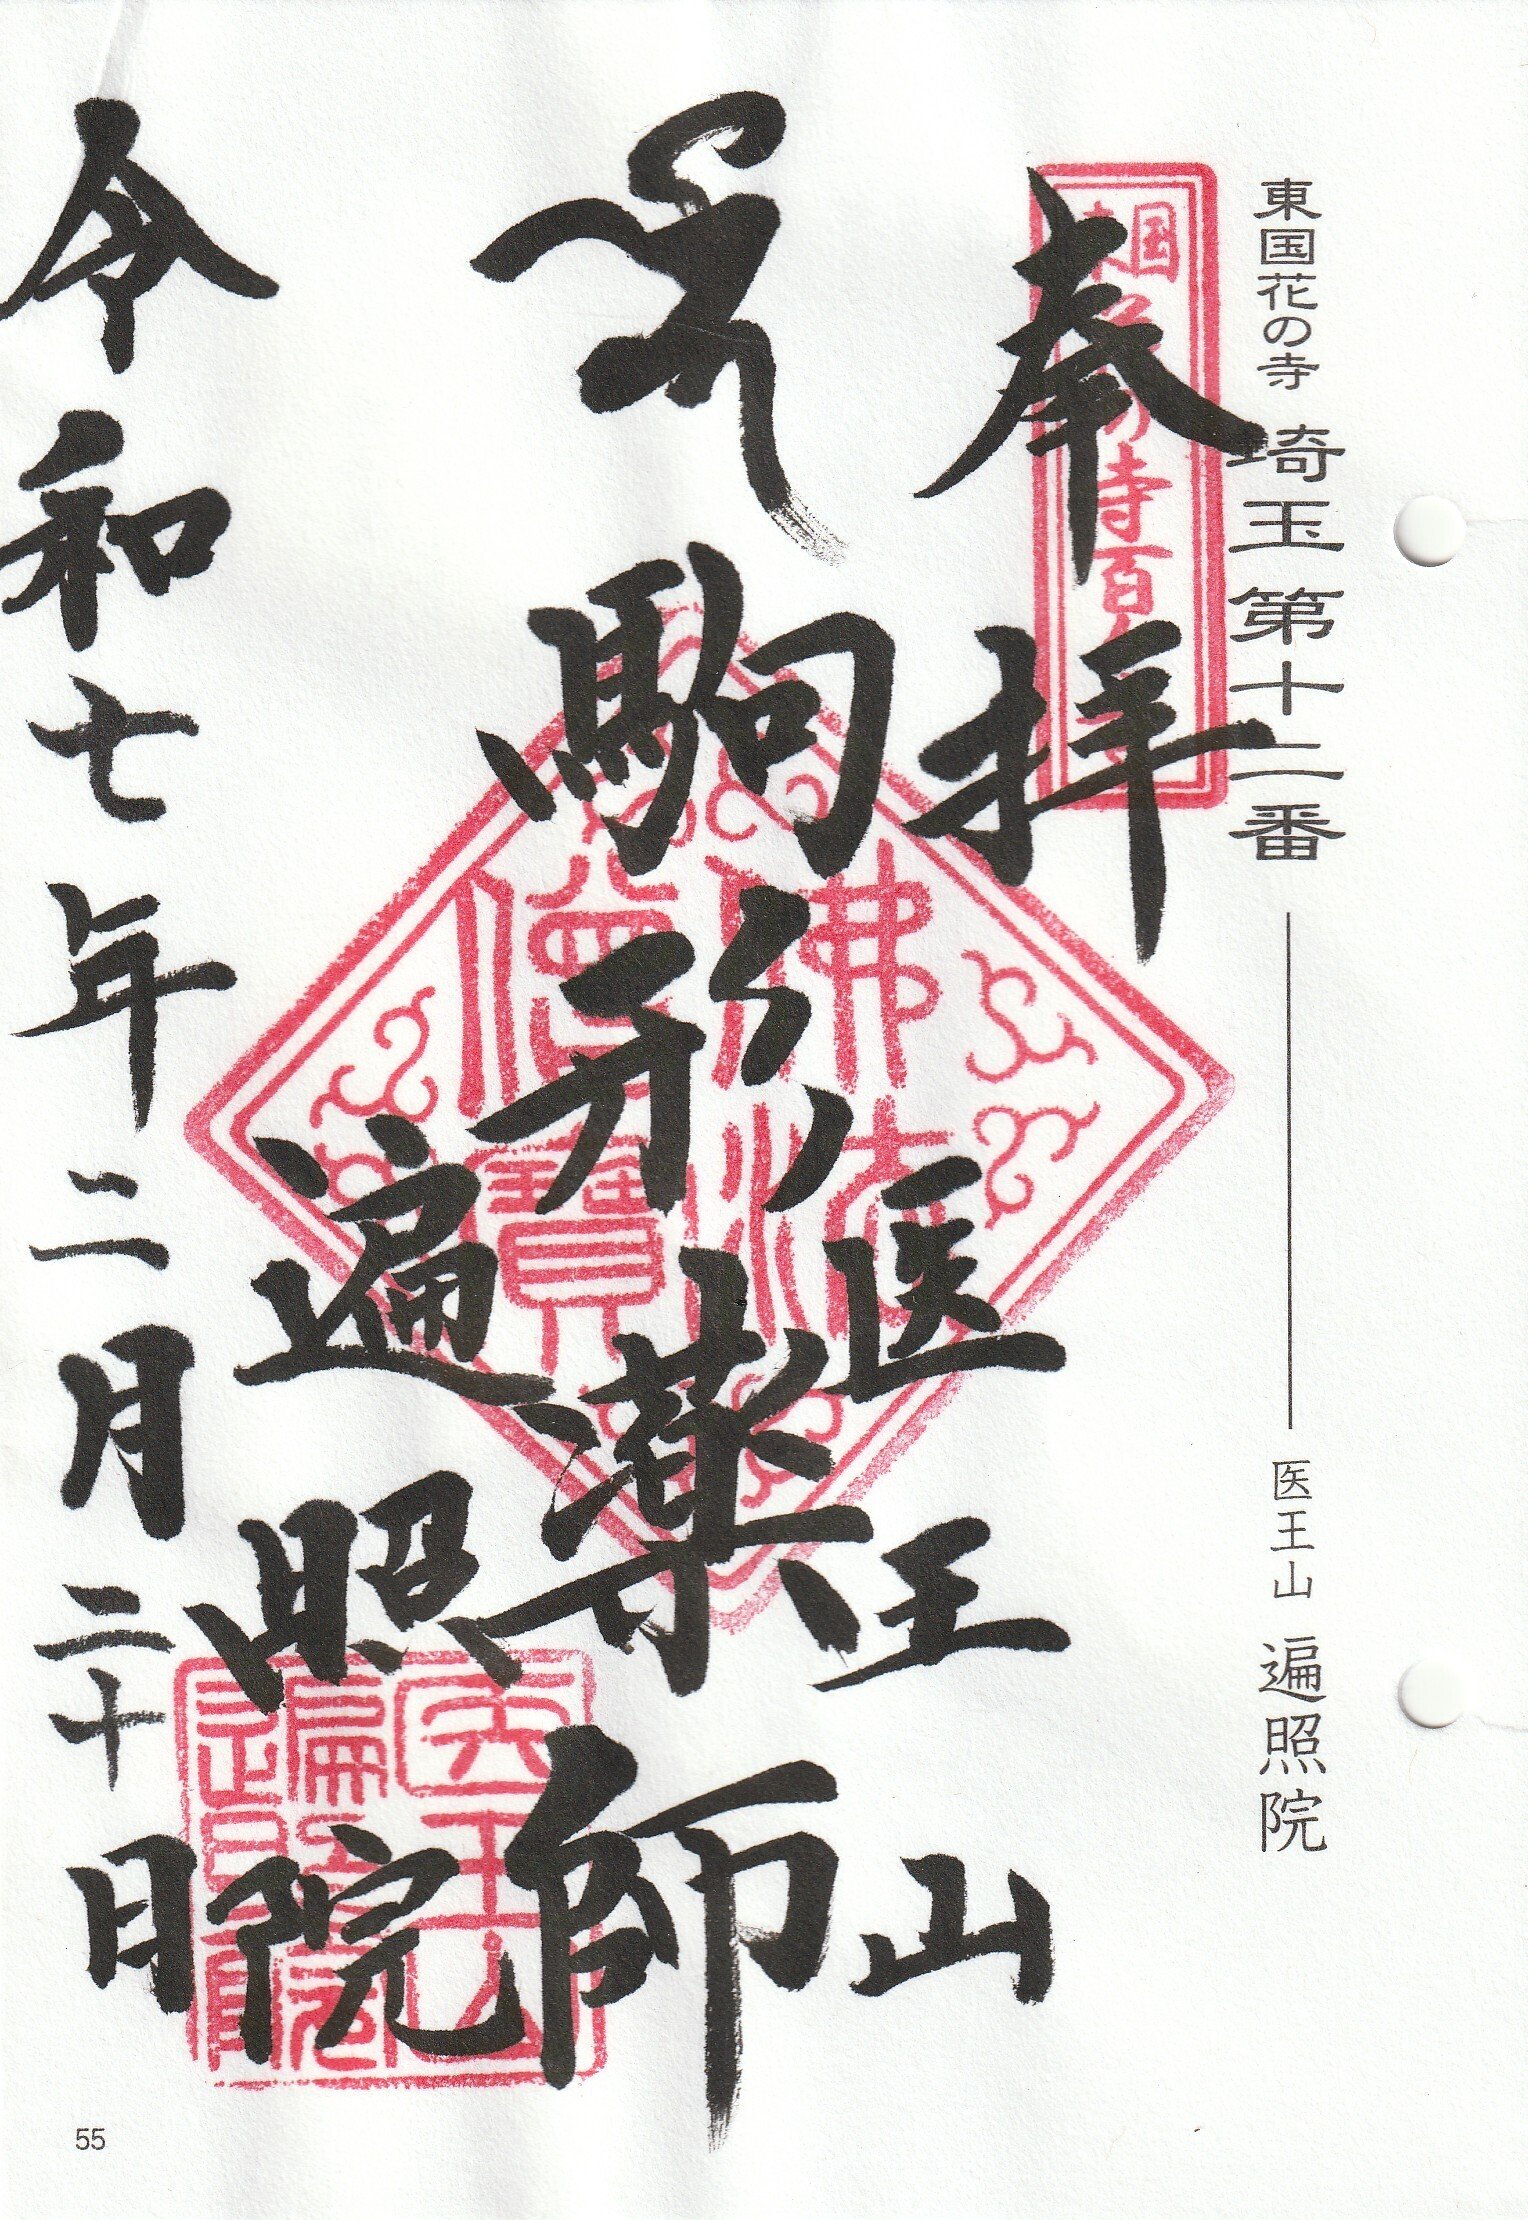 東国花の寺 埼玉第十二番 医王山 遍照院
国
寺百
奉拝
医王山
駒形薬師
佛法僧寶
遍照院
医王山
令和七年二月二十日
55